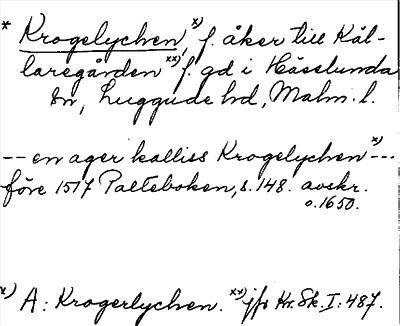 * Krogelychen x), f. åker till Käl-
laregården xx) f. gd i Hässlunda
sn, Luggude hd, Malm. l.
-- en ager kalliss Krogelychen x) ---
före 1517 Palteboken, s. 148. avskr.
o. 1650.
x) A: Krogerlychen. xx) jfr Kr. Sk. I: 487.